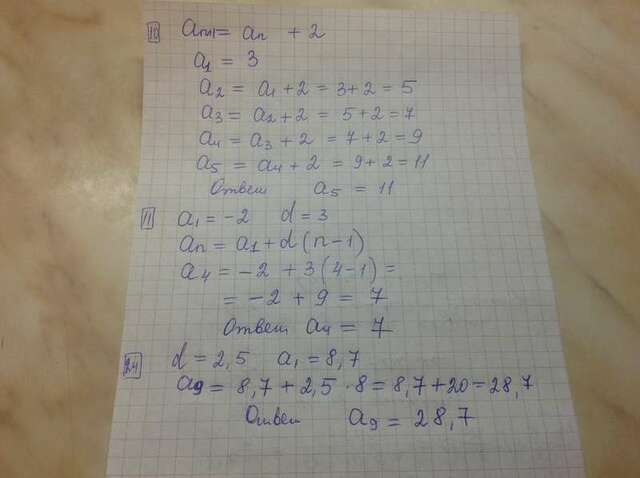 10 aₙ₊₁ = aₙ + 2
a₁ = 3
a₂ = a₁ + 2 = 3 + 2 = 5
a₃ = a₂ + 2 = 5 + 2 = 7
a₄ = a₃ + 2 = 7 + 2 = 9
a₅ = a₄ + 2 = 9 + 2 = 11
Ответ a₅ = 11
11 a₁ = -2 d = 3
aₙ = a₁ + d (n - 1)
a₄ = -2 + 3 (4 - 1) =
= -2 + 9 = 7
Ответ a₄ = 7
24 d = 2,5 a₁ = 8,7
a₉ = 8,7 + 2,5 · 8 = 8,7 + 20 = 28,7
Ответ a₉ = 28,7